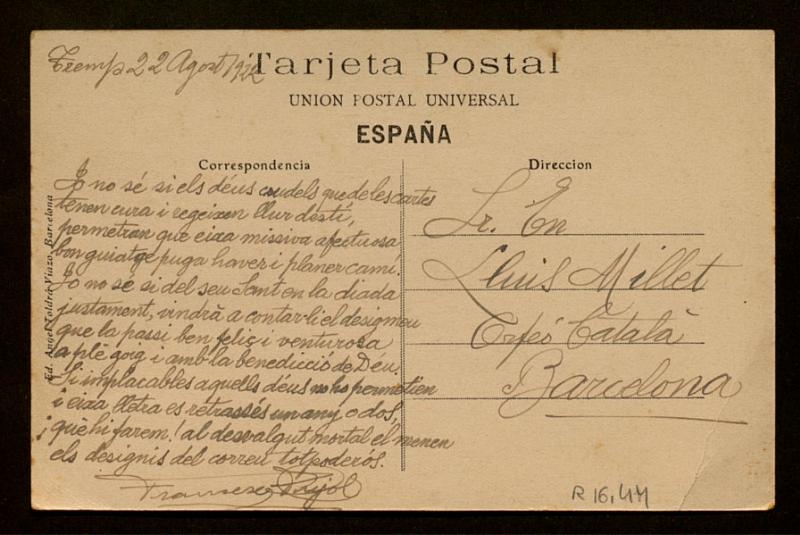 Tremp 22 Agost 1922
Tarjeta Postal
UNION POSTAL UNIVERSAL
ESPAÑA
Correspondencia
Direccion
Jo no sé si els déus cudels que de les cartes
tenen cura i regeixen llur destí,
permetran que eixa missiva afectuosa
bon guiatge puga haver i planer camí.
Jo no sé si del seu Sant en la diada
justament, vindrà a contar-li el desig meu
que la passi ben feliç i venturosa
a plè gorg i amb la benedicció de Déu.
Si implacables aquells déus no ho permetien
i eixa lletra es retrassés un any o dos,
¡que hi farem! al desvalgut mortal el menen
els designis del correu totpoderós.
Francesc Pujol
Sr. En
Lluis Millet
Orfeó Català
Barcelona
Ed. Angel Toldrá Viazo, Barcelona
R 16,44